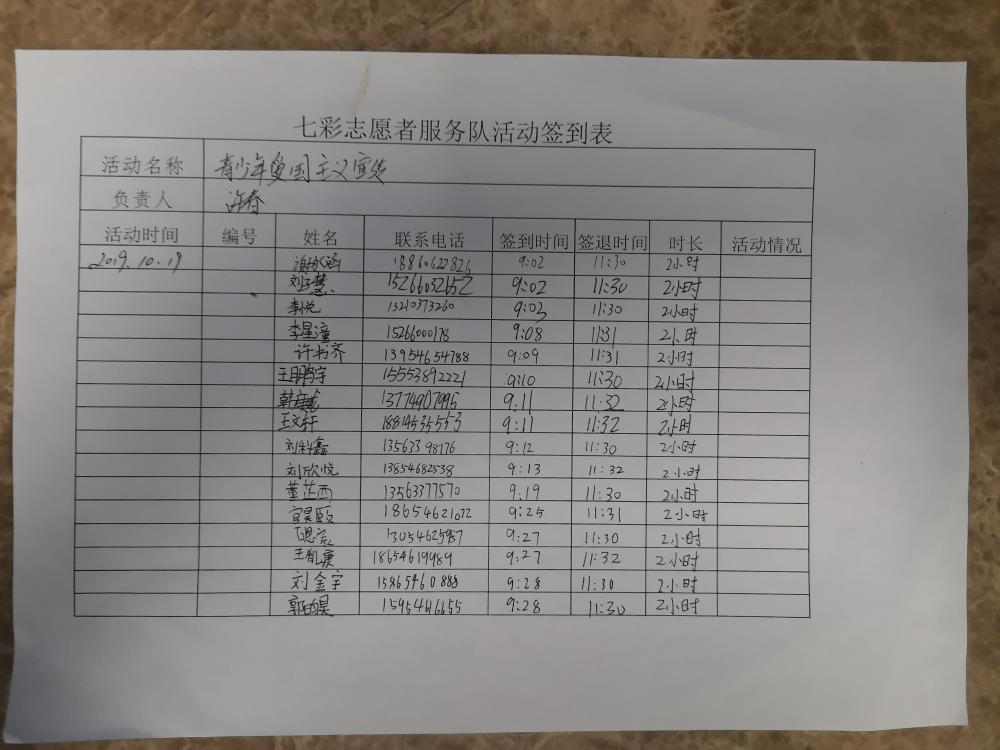 七彩志愿者服务队活动签到表
活动名称 青少年爱国主义宣传
负责人 许春
活动时间 编号 姓名 联系电话 签到时间 签退时间 时长 活动情况
2019.10.19 18860622826 9:02 11:30 2小时
刘子慧 15266032652 9:02 11:30 2小时
李悦 13210373260 9:03 11:30 2小时
李星潼 15266000178 9:08 11:31 2小时
许书齐 13954654788 9:09 11:31 2小时
王鹏宇 15553892221 9:10 11:30 2小时
13774907995 9:11 11:32 2小时
王文轩 18814535553 9:11 11:32 2小时
刘科鑫 1356398176 9:12 11:30 2小时
刘欣悦 13854682538 9:13 11:32 2小时
董芷西 13563377570 9:19 11:30 2小时
官昊颐 18654621672 9:25 11:31 2小时
13054625987 9:27 11:30 2小时
王胤康 18654619989 9:27 11:32 2小时
刘金宇 15865460888 9:28 11:30 2小时
9:28 11:30 2小时